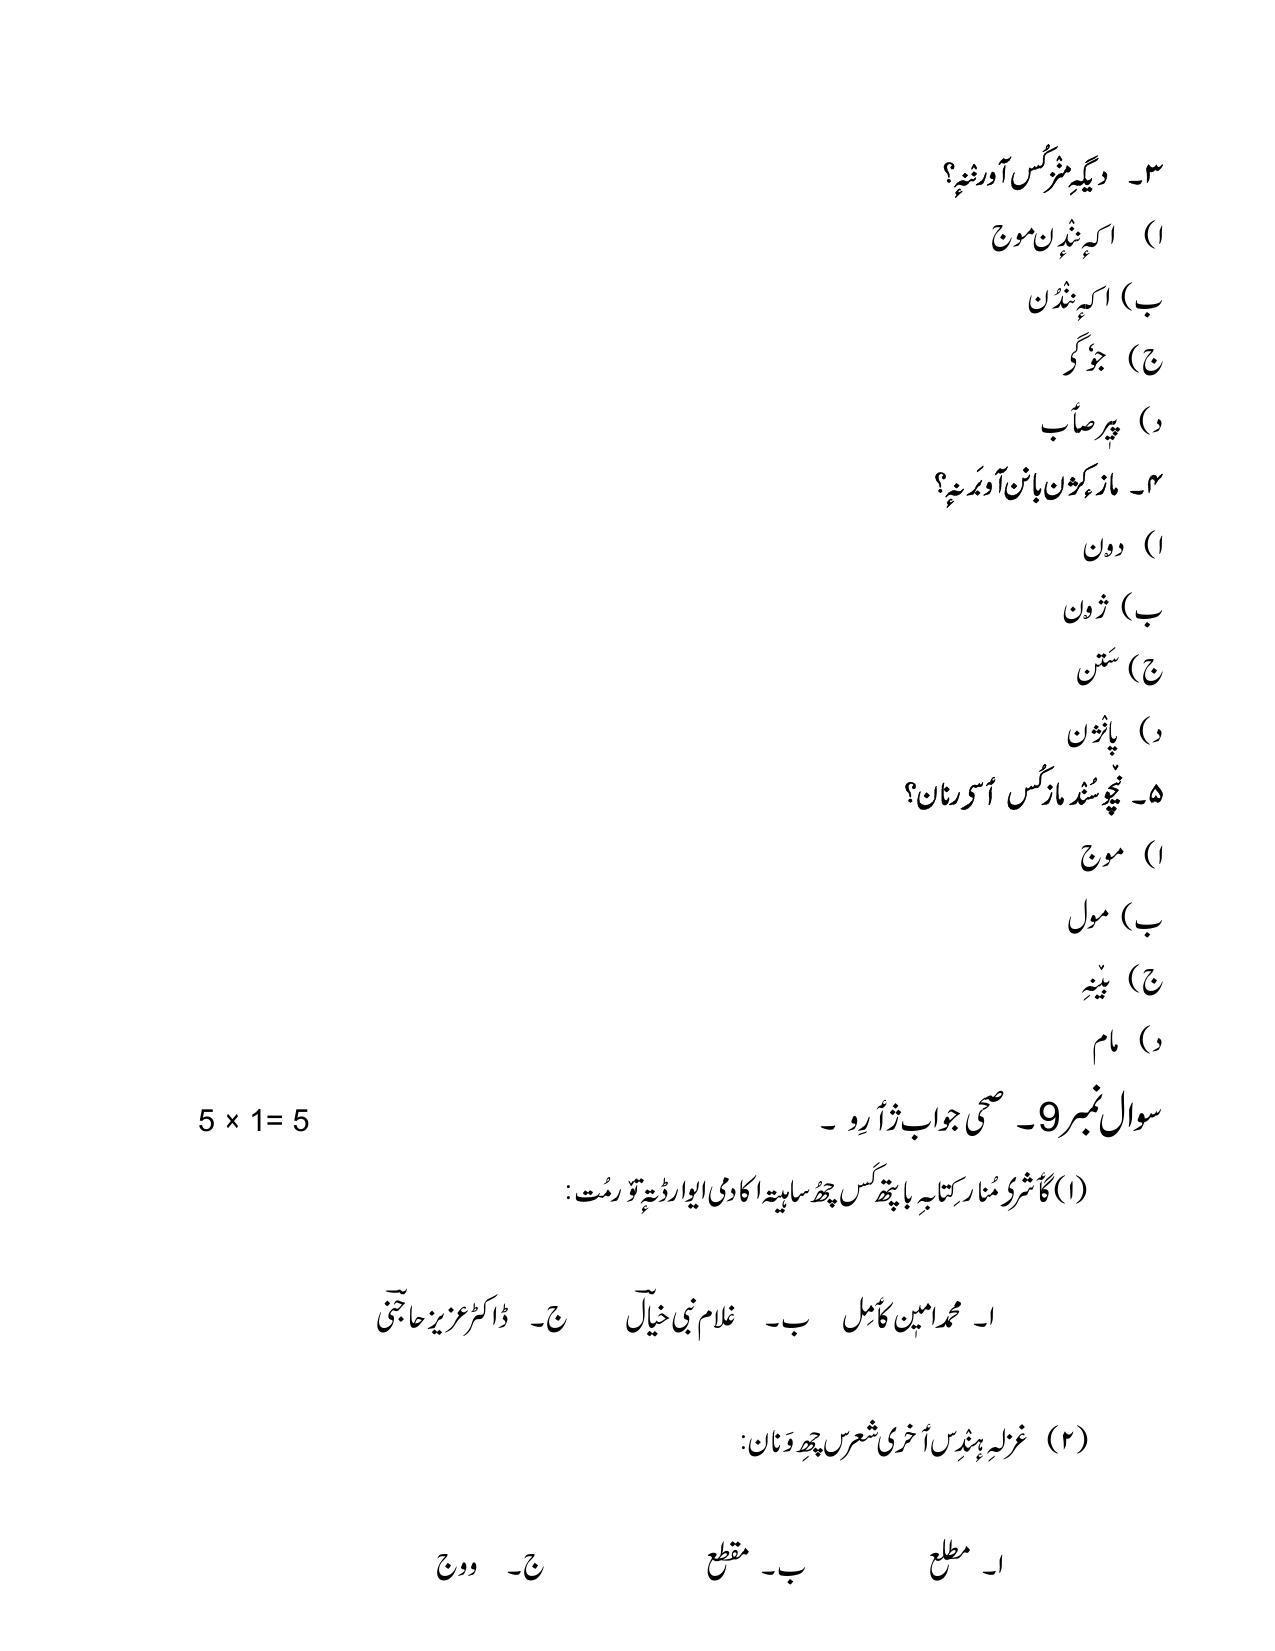 ۳۔ دیگہِ منٛز کُس آو رننہٕ؟
ا) اکہٕ ننٛدٕن موج
ب) اکہٕ ننٛدُن
ج) جوٗگۍ
د) پیٖر صٲب
۴۔ ماز ءکژن بانن آو بَرنہٕ؟
ا) دۄن
ب) ژۄن
ج) سَتن
د) پانٛژن
۵۔ نیٚچوِ سُنٛد ماز کُس ٲسۍ رنان؟
ا) موج
ب) مول
ج) بیٚنہِ
د) مام
سوال نمبر 9۔ صحی جواب ژٲرِو ۔ 5 × 1= 5
(۱) کٲشرۍ مُنار کِتابہِ باپتھ کَس چھُ ساہیتۃ اکادمی ایوارڈتہٕ تو٘رمُت :
ا۔ محمد امیٖن کٲمِل ب۔ غلام نبی خیالؔ ج۔ ڈاکٹر عزیز حاجنیؔ
(۲) غزلہِ ہٕنٛدِس ٲخری شعرس چھِ وَنان:
ا۔ مطلع ب۔ مقطع ج۔ ووج